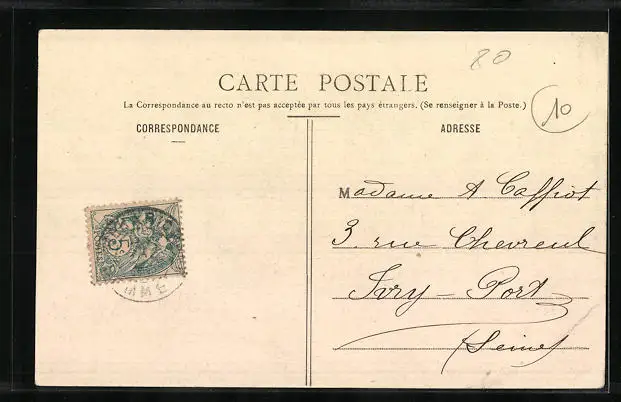 20
CARTE POSTALE
La Correspondance au recto n'est pas acceptée par tous les pays étrangers. (Se renseigner à la Poste.)
10
CORRESPONDANCE
ADRESSE
Madame A Caffiot
3, rue Chevreul
Ivry - Port
(Seine)